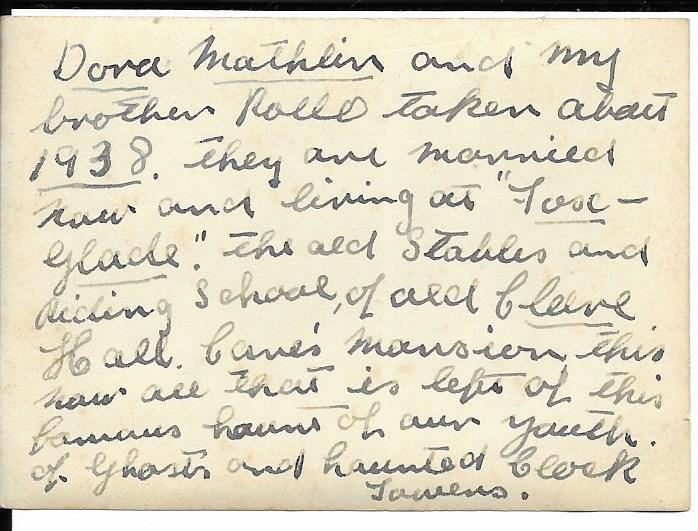 Dora Mathlin and my
brother Rollo taken about
1938. They are married
now and living at "Fox-
Glade". the old Stables and
Riding School, of old Cleve
Hall. Cave's Mansion, this
now all that is left of this
famous haunt of our youth.
of Ghosts and haunted Clock
Towers.